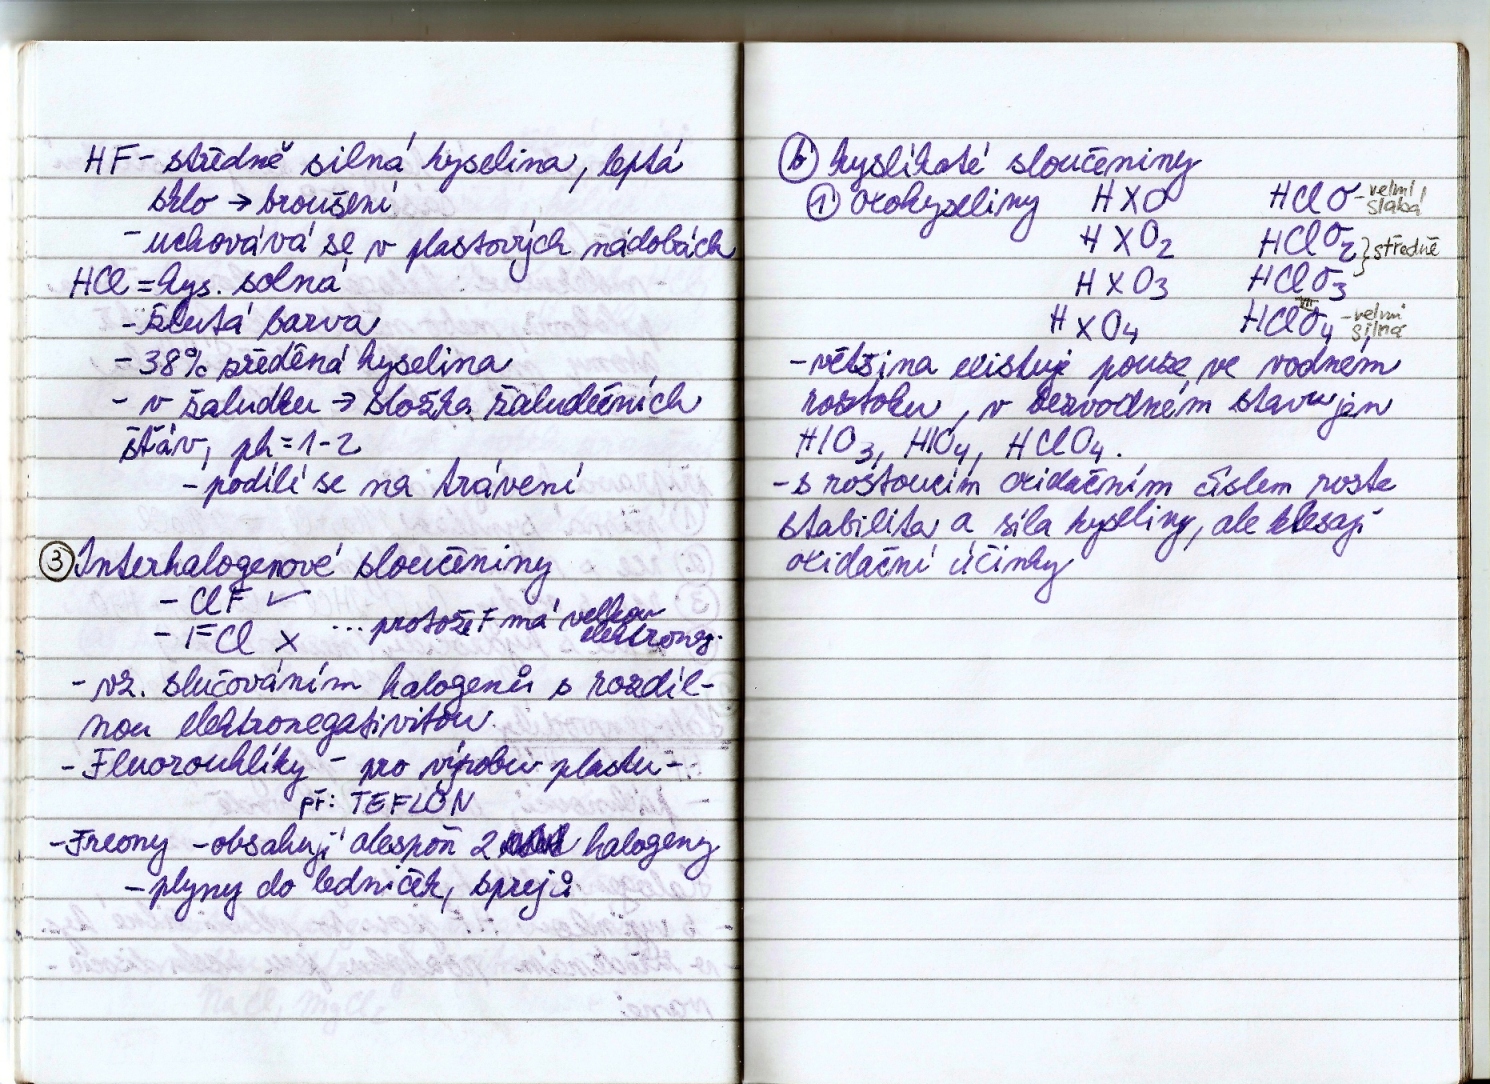 HF - středně silná kyselina, leptá
sklo → broušení
- uchovává se v plastových nádobách
HCl = kys. solná
- žlutá barva
- 38% zředěná kyselina
- v žaludku → složka žaludečních
šťáv, ph = 1-2
- podílí se na trávení
③ Interhalogenové sloučeniny
- ClF ✓
- FCl x ... protože F má velkou
elektroneg.
- vz. slučováním halogenů s rozdíl-
nou elektronegativitou.
- Fluorouhlíky - pro výrobu plastu -
př: TEFLON
- Freony - obsahují alespoň 2 halogeny
- plyny do ledniček, sprejů
ⓑ kyslíkaté sloučeniny
① oxokyseliny HXO HClO - velmi slabá
HXO2 HClO2 } středně
HXO3 HClO3
HXO4 HClO4 - velmi silná
VII
- většina existuje pouze ve vodném
roztoku, v bezvodném stavu jen
HIO3, HIO4, HClO4.
- s rostoucím oxidačním číslem roste
stabilita a síla kyseliny, ale klesají
oxidační účinky